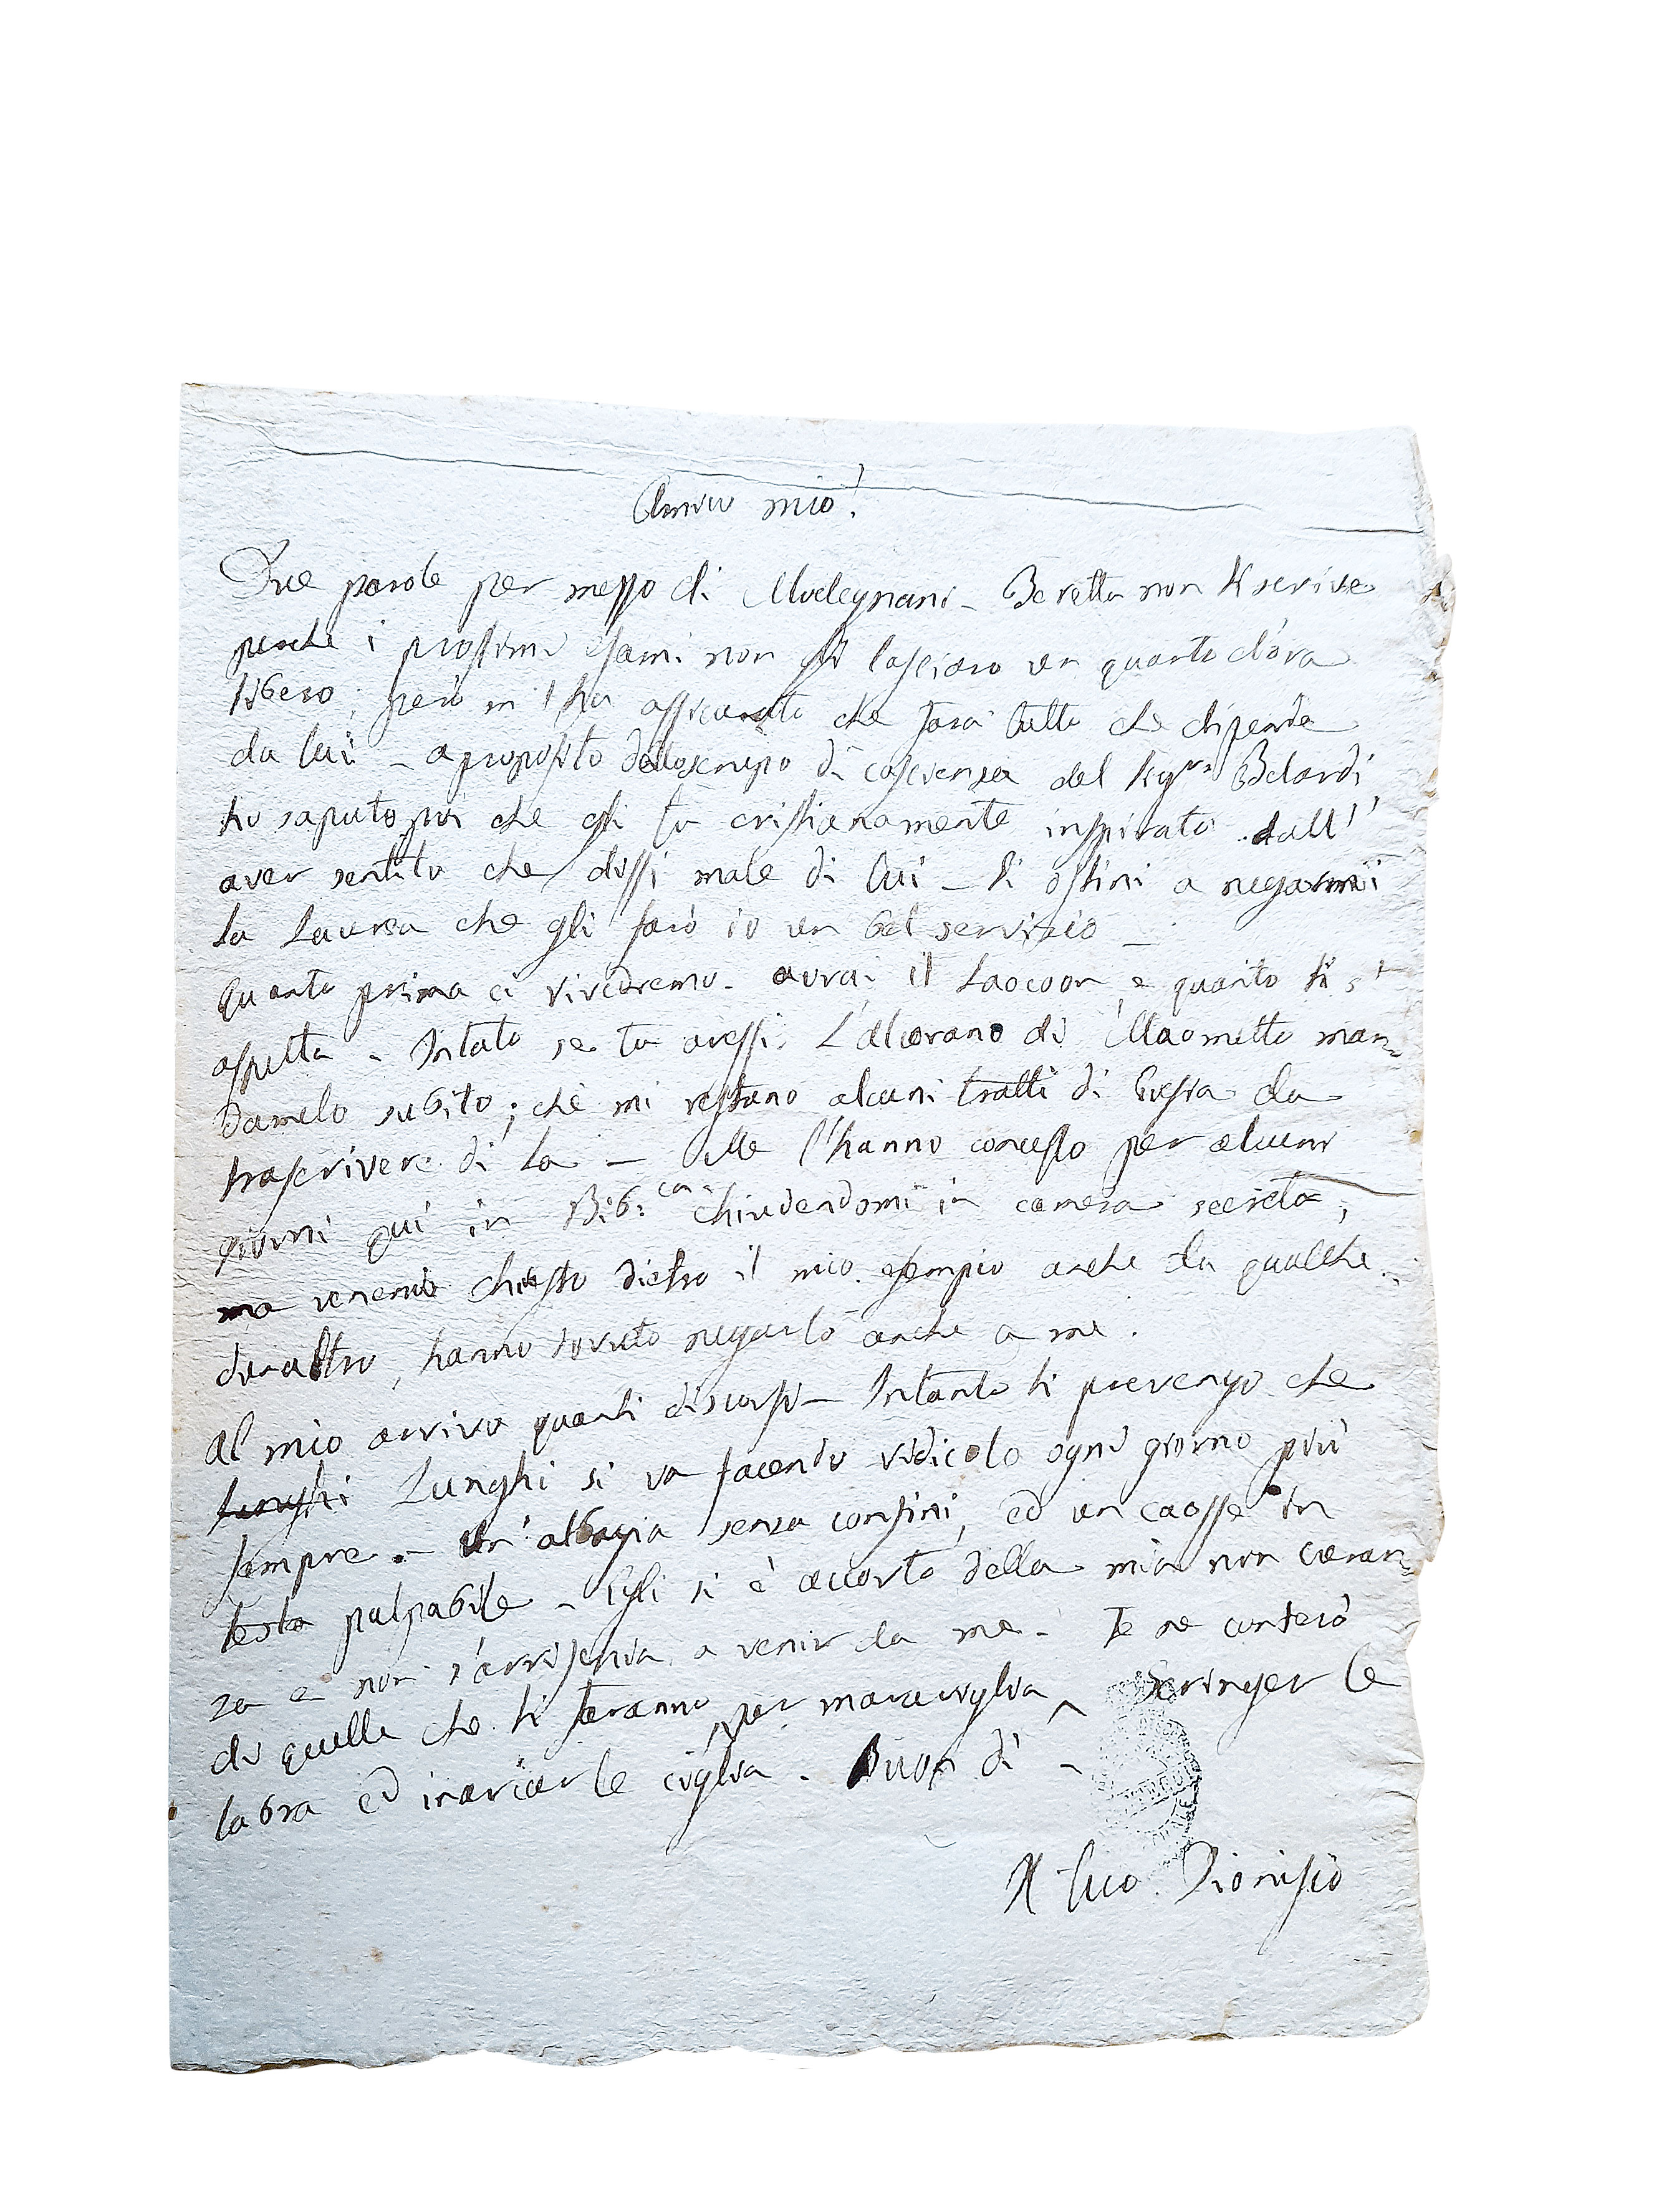 Amico mio!
Due parole per messo di Melegnani - Beretta non ti scrive
perche i prossimi esami non gli lasciano un quarto d'ora
libero; però m'ha assicurato che farà tutto che dipende
da lui - a proposito dello scrupo di coscienza del Sigre Belardi
ho saputo poi che gli fu cristianamente inspirato dall'
aver sentito che dissi male di lui - Si ostini a negarmi
la Laurea che gli farò io un bel servizio -
Quanto prima ci rivedremo. avrai il Laocoon e quanto ti s'
aspetta - Intato se tu avessi L'alcorano di Maometto man=
damelo subito; chè mi restano alcuni tratti di da
trascrivere di La - Me l'hanno concesso per alcuni
giorni qui in Bib.ca chiudendomi in camera secreta;
ma venendo chiesto dietro il mio esempio anche da qualche
dun altro, hanno dovuto negarlo anche a me.
Al mio arrivo quanti discorsi - Intanto ti prevengo che
Lunghi si va facendo ridicolo ogni giorno più
sempre. - Un'albagia senza confini, ed un caosse in
testa palpabile - Egli si è accorto della mia non curan=
za e non s'arrisenia a venir da me. Te ne conterò
di quelle che ti faranno per maraviglia stringer le
labra ed inarcar le ciglia. Buon dì -
Il tuo Dionisio